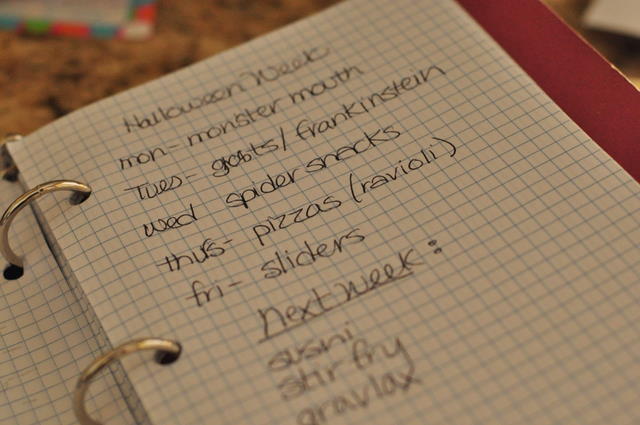 Halloween Week
mon- monster mouth
Tues- gosts/frankinstein
wed spider snacks
thurs- pizzas (ravioli)
fri- sliders
Next Week:
sushi
stir fry
gravlax